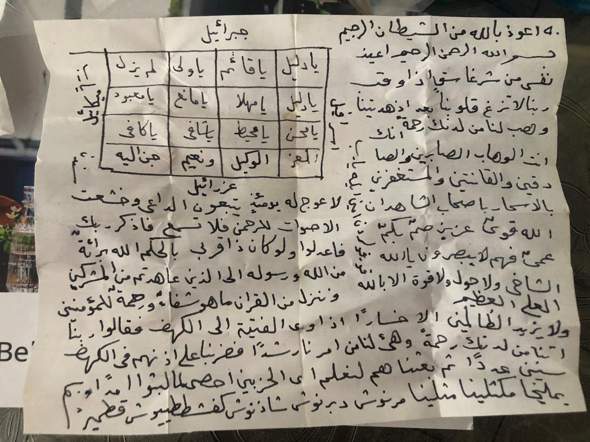 اعوذ بالله من الشيطان الرجيم
بسم الله الرحمن الرحيم اعيذ
نفسي من شر غاسق اذا وقب
ربنا لا تزغ قلوبنا بعد اذ هديتنا
وهب لنا من لدنك رحمة انك
انت الوهاب الصابرين والصا
دقين والقانتين والمستغفرين
بالاسحار يا صاحب الشاهدان
الله قوي عزيز صم بكم
عمي فهم لا يبصرون يا الله
الشافي ولا حول ولا قوة الا بالله
العلي العظيم
جبرائيل
يا دليل يا قائم يا ولي لم يزل
يا دليل يا مهلا يا مانع يا معبود
يا محيط يا شافي يا كافي
الوكيل ونعيم
عزرائيل
لا عوج له يومئذ يتبعون الداعي وخشعت
الاصوات للرحمن فلا تسمع فاذكر ربك
فاعدلوا ولو كان ذا قربى بالحكم الله برائة
من الله ورسوله الى الذين عاهدتم من المشركين
وننزل من القران ما هو شفاء ورحمة للمؤمنين
ولا يزيد الظالمين الا خسارا اذ اوى الفتية الى الكهف فقالوا ربنا
اتنا من لدنك رحمة وهيء لنا من امرنا رشدا فضربنا على اذنهم في الكهف
سنين عددا ثم بعثنا هم لنعلم اى الحزبين احصى لما لبثوا امدا
يمليخا مكثلينا مثلينا مرنوش دبرنوش شاذنوش كفشططيوش قطمير